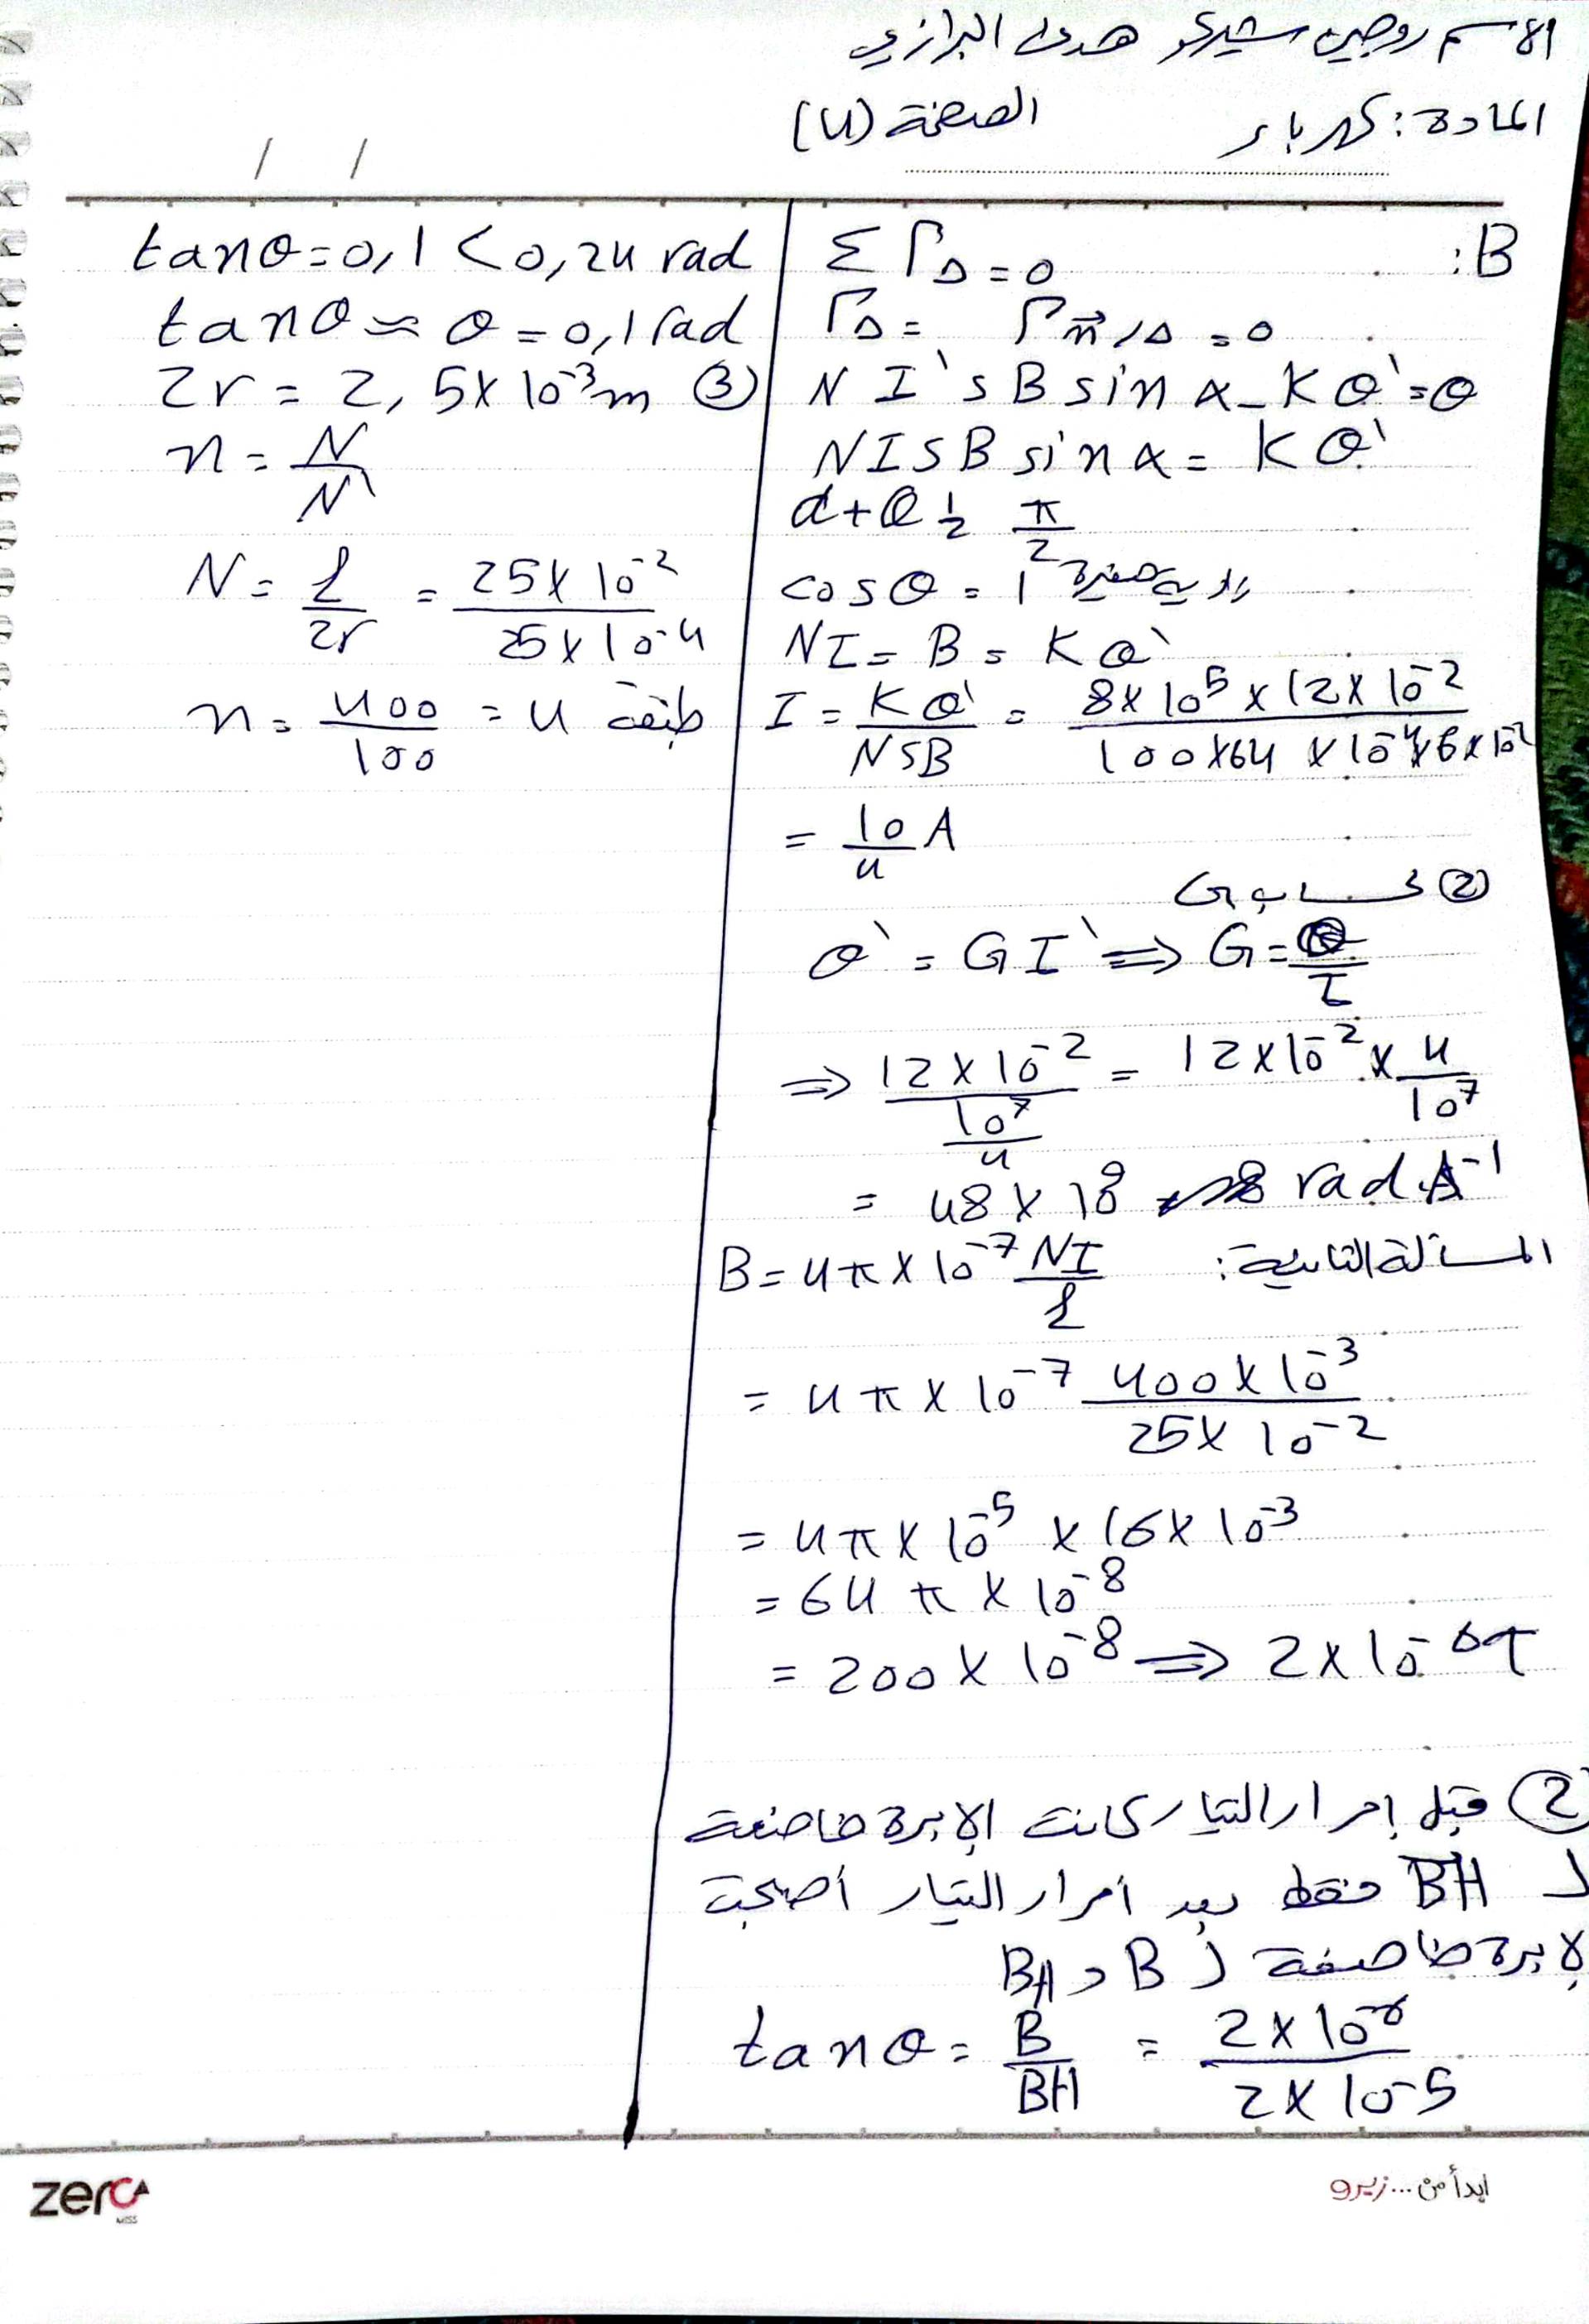 الاسم روجين شيركو هدى البرازي
المادة: كهرباء الصفحة (4)
/ /
B:
Σ Γ_Δ = 0
Γ_Δ = Γ_π⃗/Δ = 0
N I' s B sin α - K θ' = 0
N I S B sin α = K θ'
α + θ ½ π/2
cos θ = 1 زاوية صغيرة
NI = B = K θ'
I = Kθ'/NSB = 8×10⁵ × 12×10⁻²/100×64×10⁻⁴×6×10⁻²
= 10/4 A
② حساب G
θ' = G I' ⇒ G = θ/I
⇒ 12×10⁻²/10⁷/4 = 12×10⁻² × 4/10⁷
= 48×10⁹ rad.A⁻¹
المسألة الثانية:
B = 4π×10⁻⁷ NI/l
= 4π×10⁻⁷ 400×10⁻³/25×10⁻²
= 4π×10⁻⁵ × 16×10⁻³
= 64π×10⁻⁸
= 200×10⁻⁸ ⇒ 2×10⁻⁶T
② قبل إمرار التيار كانت الإبرة خاضعة
ل BH فقط بعد أمرار التيار أصبحت
لإبرة خاضعة ل B و BH
tan θ = B/BH = 2×10⁻⁶/2×10⁻⁵
tan θ = 0,1 < 0,24 rad
tan θ ≈ θ = 0,1 rad
2r = 2,5×10⁻³m ③
n = N/N'
N = l/2r = 25×10⁻²/25×10⁻⁴
n = 400/100 = 4 طبقة
zero
MISS
ابدأ من...زيرو